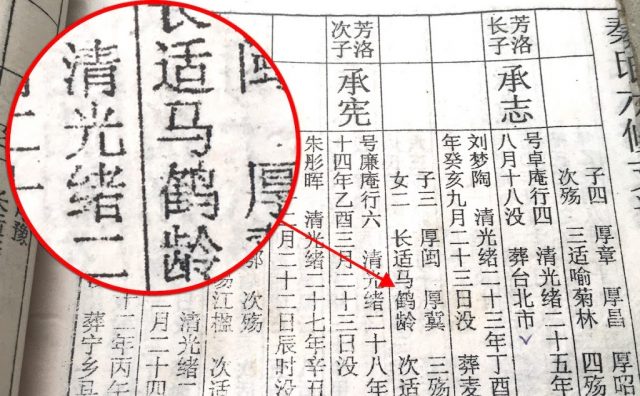 秦氏六修
子四 厚章 厚昌 厚昭
次殇 三适喻菊林 四殇
芳洛
长子
承志
号卓庵行四 清光绪二十五年
八月十八没 葬台北市
刘梦陶 清光绪二十三年丁酉
年癸亥九月二十三日没 葬麦
子三 厚闽 厚冀 三殇
女二 长适马鹤龄 次适
芳洛
次子
承宪
号廉庵行六 清光绪二十八年
十四年乙酉三月二十三日没
朱彤晖 清光绪二十七年辛丑
月二十二日辰时没
次殇
江楹 次适
二月二十四
清光绪二
十二年丙午
葬宁乡县
闽 厚
长适马鹤龄
清光绪二
二十